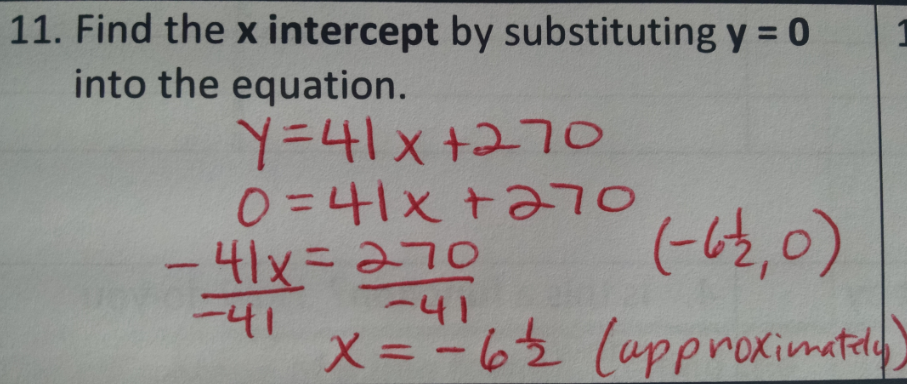 11. Find the x intercept by substituting y = 0
into the equation.
y=41x+270
0=41x+270
-41x=270
-41 -41
(-6½,0)
x=-6½ (approximately)